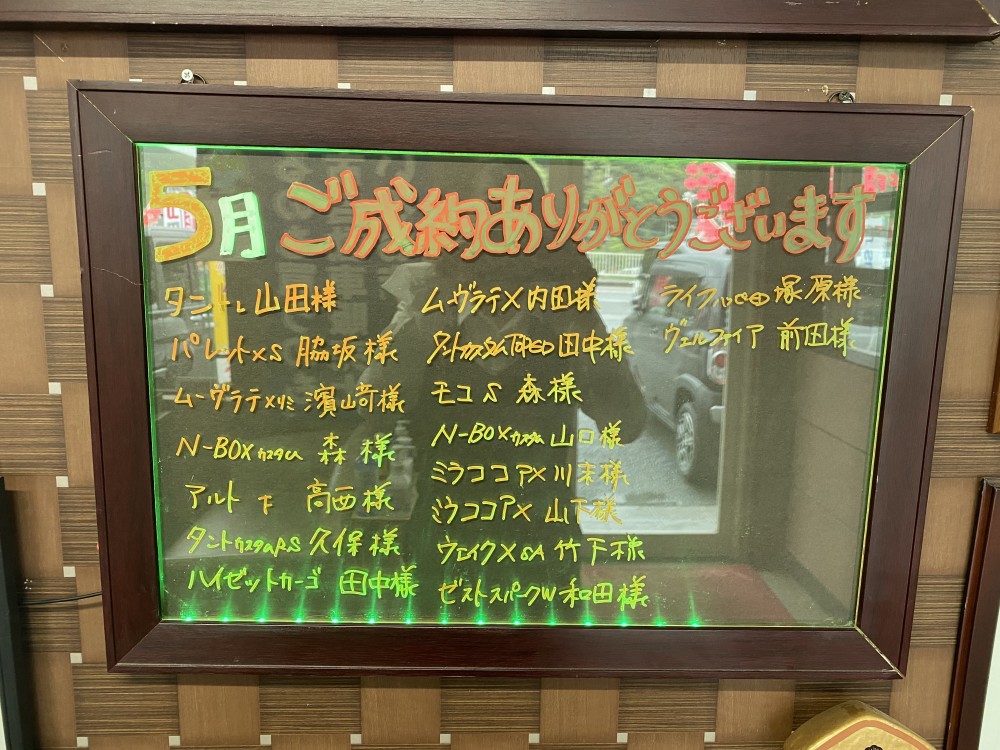 5月 ご成約ありがとうございます
タント L 山田様
パレット×S 脇坂様
ムーヴラテ×リミ 濱崎様
N-BOXカスタム 森様
アルト F 高西様
タントカスタムRS 久保様
ハイゼットカーゴ 田中様
ムーヴラテX 内田様
タントカスタム 田中様
モコ S 森様
N-BOXカスタム 山口様
ミラココアX 川末様
ミラココアX 山下様
ウェイクXSA 竹下様
ゼストスパークW 和田様
ライフ 塚原様
ヴェルファイア 前田様